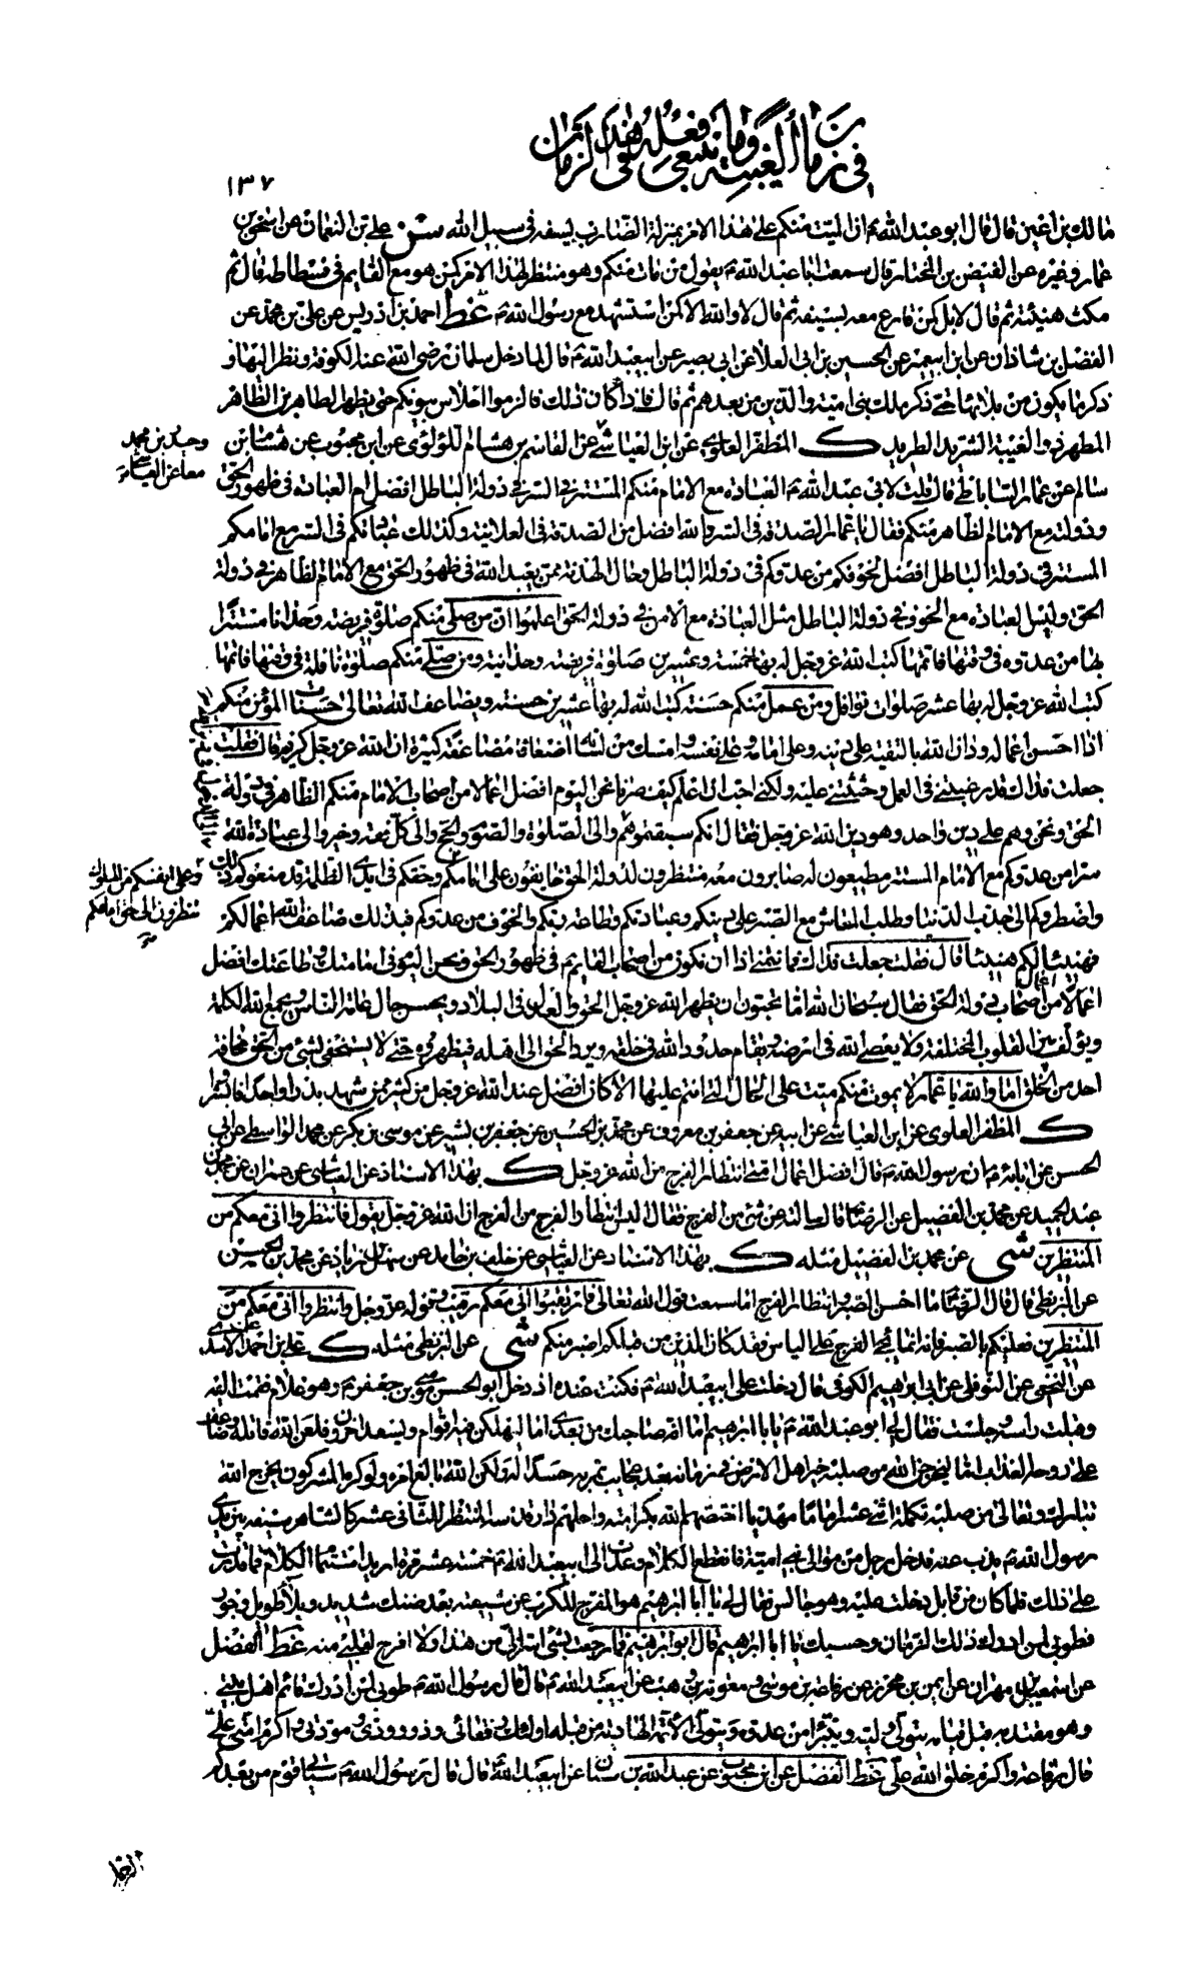 في زمان الغيبة وما ينبغي فعله في هذا الزمان
١٣٧
مالك بن اعين قال قال ابو عبد الله ع ان الميت منكم على هذا الامر بمنزلة الضارب بسيفه في سبيل الله سن علي بن النعمان عن اسحق بن
عمار وغيره عن الفيض بن المختار قال سمعت ابا عبد الله ع يقول من مات منكم وهو منتظر لهذا الامر كمن هو مع القايم في فسطاطه قال ثم
مكث هنيئة ثم قال لا بل كمن قارع معه بسيفه ثم قال لا والله الا كمن استشهد مع رسول الله ص غط احمد بن ادريس عن علي بن محمد عن
الفضل بن شاذان عن ابن ابيعمير عن الحسين بن ابي العلا عن ابي بصير عن ابيعبد الله ع قال لما دخل سلمان رضي الله عنه الكوفة ونظر اليها و
ذكر ما يكون من بلائها حتى ذكر ملك بني امية والذين من بعدهم ثم قال فاذا كان ذلك فالزموا احلاس بيوتكم حتى يظهر الطاهر بن الطاهر
المطهر ذو الغيبة الشريد الطريد ك المظفر العلوي عن ابن العياشي عن القاسم بن هشام اللؤلؤي عن ابن محبوب عن هشام بن
وحيدر بن محمد
معا عن العياشي
سالم عن عمار الساباطي قال قلت لابي عبد الله ع العبادة مع الامام منكم المستتر في السر في دولة الباطل افضل ام العبادة في ظهور الحق
ودولته مع الامام الظاهر منكم فقال يا عمار الصدقة في السر والله افضل من الصدقة في العلانية وكذلك عبادتكم في السر مع امامكم
المستتر في دولة الباطل افضل لخوفكم من عدوكم في دولة الباطل وحال الهدنة ممن يعبد الله في ظهور الحق مع الامام الظاهر في دولة
الحق وليس العبادة مع الخوف في دولة الباطل مثل العبادة مع الامن في دولة الحق اعلموا ان من صلى منكم صلوة فريضة وحدانا مستترا
بها من عدوه في وقتها فاتمها كتب الله عز وجل له بها خمسة وعشرين صلوة فريضة وحدانية ومن صلى منكم صلوة نافلة في وقتها فاتمها
كتب الله عز وجل له بها عشر صلوات نوافل ومن عمل منكم حسنة كتب الله له بها عشرين حسنة ويضاعف الله تعالى حسنات المؤمن منكم
اذا احسن اعماله ودان الله بالتقية على دينه وعلى امامه وعلى نفسه وامسك من لسانه اضعافا مضاعفة كثيرة ان الله عز وجل كريم قال فقلت
جعلت فداك قد رغبتني في العمل وحثثتني عليه ولكني احب ان اعلم كيف صرنا نحن اليوم افضل اعمالا من اصحاب الامام منكم الظاهر في دولة
الحق ونحن وهم على دين واحد وهو دين الله عز وجل فقال انكم سبقتموهم والى الصلوة والصوم والحج والى كل فقه وخير والى عبادة الله
سرا من عدوكم مع الامام المستتر مطيعون له صابرون معه منتظرون لدولة الحق خايفون على امامكم وحقكم في ايدي الظلمة قد منعوكم ذلك
وعلى انفسكم من الملوك
تنظرون الى حق امامكم
واضطروكم الى جذب الدنيا وطلب المعاش مع الصبر على دينكم وعبادتكم وطاعة ربكم والخوف من عدوكم فبذلك ضاعف الله اعمالكم
فهنيئا لكم هنيئا قال فقلت جعلت فداك فما نتمنى اذا ان نكون من اصحاب القايم في ظهور الحق ونحن اليوم في امامتك وطاعتك افضل
اعمالا من اعمال اصحاب دولة الحق فقال سبحان الله اما تحبون ان يظهر الله عز وجل الحق والعدل في البلاد ويحسن حال عامة الناس ويجمع الله الكلمة
ويؤلف بين القلوب المختلفة ولا يعصى الله في ارضه ويقام حدود الله في خلقه ويرد الحق الى اهله فيظهروه حتى لا يستخفى بشئ من الحق مخافة
احد من الخلق اما والله يا عمار لا يموت منكم ميت على الحال التي انتم عليها الا كان افضل عند الله عز وجل من كثير ممن شهد بدرا واحدا فابشروا
ك المظفر العلوي عن ابن العياشي عن ابيه عن جعفر بن معروف عن محمد بن الحسين عن جعفر بن بشير عن موسى بن بكر عن محمد الواسطي عن ابي
الحسن عن ابائه ع ان رسول الله ص قال افضل اعمال امتي انتظار الفرج من الله عز وجل ك بهذا الاسناد عن العياشي عن عمران عن محمد بن
عبد الحميد عن محمد بن الفضيل عن الرضا ع قال سالته عن شئ من الفرج فقال اليس انتظار الفرج من الفرج ان الله عز وجل يقول فانتظروا اني معكم من
المنتظرين شي عن محمد بن الفضيل مثله ك بهذا الاسناد عن العياشي عن خلف بن حامد عن سهل بن زياد عن محمد بن الحسين
عن البزنطي قال قال الرضا ع ما احسن الصبر وانتظار الفرج اما سمعت قول الله تعالى فارتقبوا اني معكم رقيب وقوله عز وجل وانتظروا اني معكم من
المنتظرين فعليكم بالصبر فانه انما يجئ الفرج على الياس فقد كان الذين من قبلكم اصبر منكم شي عن البزنطي مثله ك علي بن احمد عن الاسدي
عن النخعي عن النوفلي عن ابي ابراهيم الكوفي قال دخلت على ابيعبد الله ع فكنت عنده اذ دخل ابو الحسن موسى بن جعفر ع وهو غلام فقمت اليه
وقبلت راسه وجلست فقال لي ابو عبد الله ع يا با ابراهيم اما انه صاحبك من بعدي اما ليهلكن فيه اقوام ويسعد اخرون فلعن الله قاتله وضاعف
على روحه العذاب اما ليخرجن الله من صلبه خير اهل الارض في زمانه بعد عجايب تمر به حسدا له ولكن الله بالغ امره ولو كره المشركون يخرج الله
تبارك وتعالى من صلبه تكملة اثني عشر اماما مهديا اختصهم الله بكرامته واحلهم دار قدسه المنتظر للثاني عشر كالشاهر سيفه بين يدي
رسول الله ص يذب عنه فدخل رجل من موالي بني امية فانقطع الكلام وعدت الى ابيعبد الله ع خمسة عشر مرة اريد استتمام الكلام فما قدرت
على ذلك فلما كان من قابل دخلت عليه وهو جالس فقال لي يا ابا ابراهيم هو المفرج للكرب عن شيعته بعد ضنك شديد وبلاء طويل وجور
فطوبى لمن ادرك ذلك الزمان وحسبك يا ابا ابراهيم قال ابو ابراهيم فما رجعت بشئ اسر الي من هذا ولا افرح لقلبي منه غط الفضل
عن اسمعيل بن مهران عن ايمن بن محرز عن رفاعة بن موسى ومعوية بن وهب عن ابيعبد الله ع قال قال رسول الله ص طوبى لمن ادرك قائم اهل بيتي
وهو مقتد به قبل قيامه يتولى وليه ويتبرأ من عدوه ويتولى الائمة الهادية من قبله اولئك رفقائي وذوو ودي ومودتي واكرم امتي علي
قال رفاعة واكرم خلق الله علي غط الفضل عن ابن محبوب عن عبد الله بن سنان عن ابيعبد الله ع قال قال رسول الله ص سياتي قوم من بعدكم